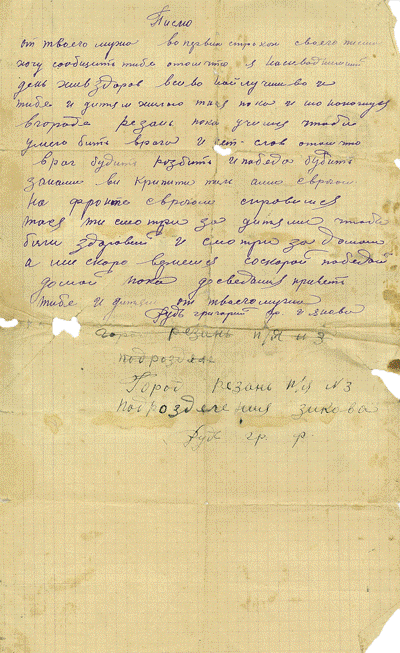 Писмо
от твоего мужа во первих строках своего писма
хочу сообщить тибе о том што я на сиводнишний
день жив здоров всиво найлучшиво и
тибе и дитям желаю тася пока и
вгораде резань пока учимся чтоби
умело бить врага и слов о том што
враг будить розбить и победа будить
занами ви крипити тил
на фронте с врагом справимся
тася ти смотри за дитями чтоби
били здоровий и смотри за домом
а ми скоро вернемся соскорой победой
домой пока досведания привет
тибе и дитям от твоего мужа
Рудь григорий
город резань п/я №3
подроздел
Город резань п/я №3
подрозделения зикова
Рудь гр. ф.